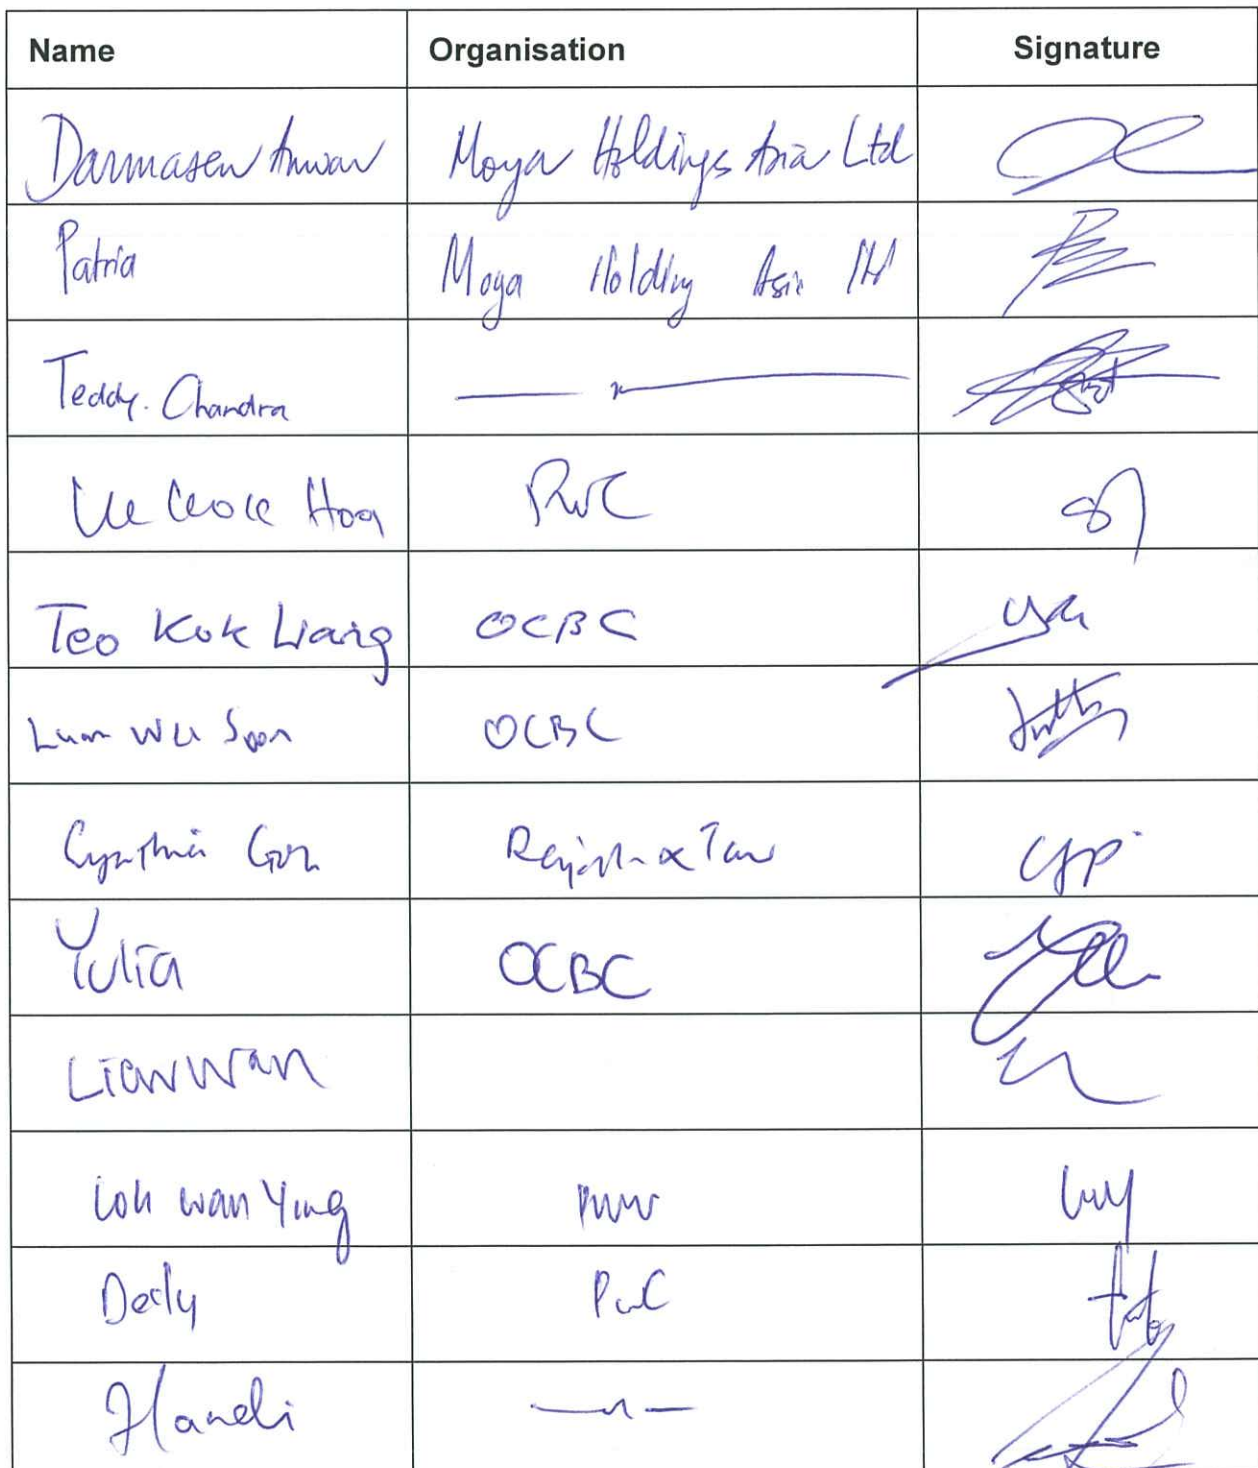 Name Organisation Signature
Darmasen Anwar Moya Holdings Asia Ltd
Patria Moya Holding Asia Ltd
Teddy. Chandra
Hoa PwC
Teo Kok Liang OCBC
Lum Wu Soon OCBC
Cynthia Goh Rajah & Tan
Yulia OCBC
Liaw Wan
Loh Wan Ying
Dedy PwC
Handi